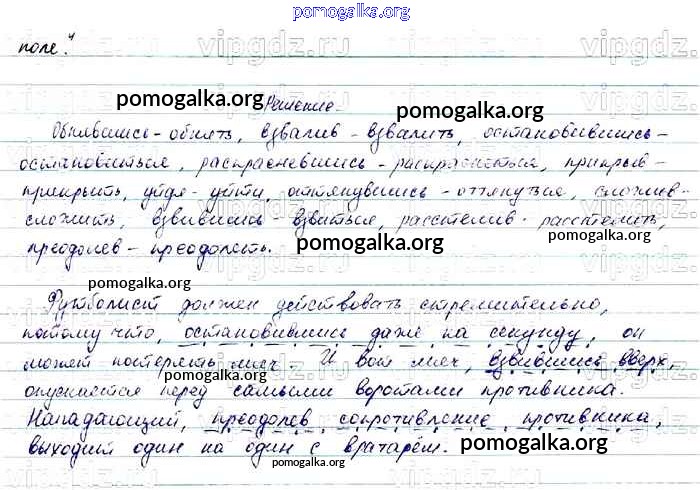 pomogalka.org
vipgdz.ru vipgdz.ru vipgdz.ru
поле".
Решение.
pomogalka.org pomogalka.org
Обнявшись - обнять, взвалив - взвалить, остановившись -
остановиться, раскрасневшись - раскраснеться, прикрыв -
прикрыть, уйдя - уйти, оттянувшись - оттянуться, сложив -
сложить, взвившись взвиться, расстелив - расстелить,
преодолев - преодолеть.
pomogalka.org pomogalka.org
pomogalka.org
Футболист должен действовать стремительно,
потому что, остановившись даже на секунду, он
может потерять мяч. И вот мяч, взвившись вверх,
pomogalka.org pomogalka.org
опускается перед самыми воротами противника.
Нападающий, преодолев сопротивление противника,
выходит один на один с вратарём.
pomogalka.org
pomogalka.org